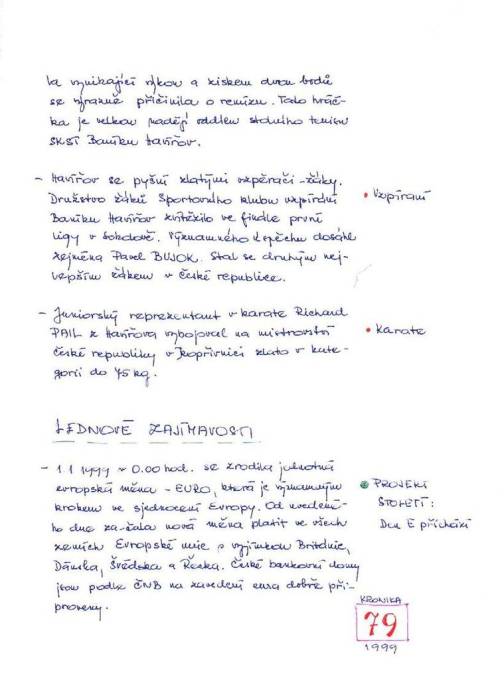 la vynikající výkon a ziskem dvou bodů
se výrazně přičinila o remízu. Tato hráč-
ka je velkou nadějí oddílu stolního tenisu
SKST Baníku Havířov.
- Havířov se pyšní zlatými vzpěrači - žáky.
Družstvo žáků Sportovního klubu vzpírání
Baníku Havířov zvítězilo ve finále první
ligy v Sokolově. Významného úspěchu dosáhl
zejména Pavel BUJOK. Stal se druhým nej-
lepším žákem v České republice.
• Vzpírání
- Juniorský reprezentant v karate Richard
PAIL z Havířova vybojoval na mistrovství
České republiky v Kopřivnici zlato v kate-
gorii do 75 kg.
• Karate
LEDNOVÉ ZAJÍMAVOSTI
- 1.1 1999 v 0.00 hod. se zrodila jednotná
evropská měna - EURO, která je významným
krokem ve sjednocení Evropy. Od uvedené-
ho dne začala nová měna platit ve všech
zemích Evropské unie s vyjímkou Británie,
Dánska, Švédska a Řecka. České bankovní domy
jsou podle ČNB na zavedení eura dobře při-
praveny.
• PROJEKT
STOLETÍ:
Den E přichází
KRONIKA
79
1999